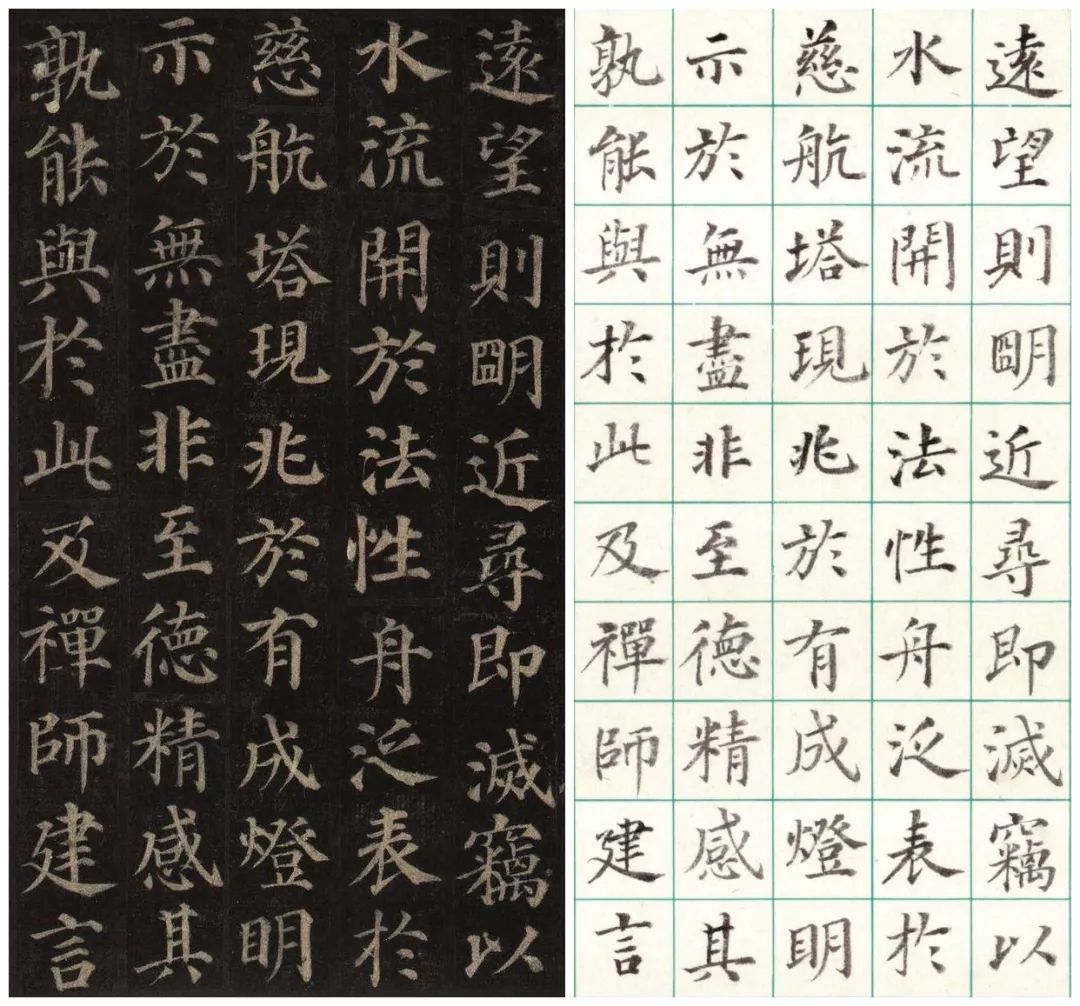 遠望則朙近尋即滅竊以
水流開於法性舟泛表於
慈航塔現兆於有成燈明
示於無盡非至德精感其
孰能與於此及禪師建言
遠望則朙近尋即滅竊以
水流開於法性舟泛表於
慈航塔現兆於有成燈明
示於無盡非至德精感其
孰能與於此及禪師建言